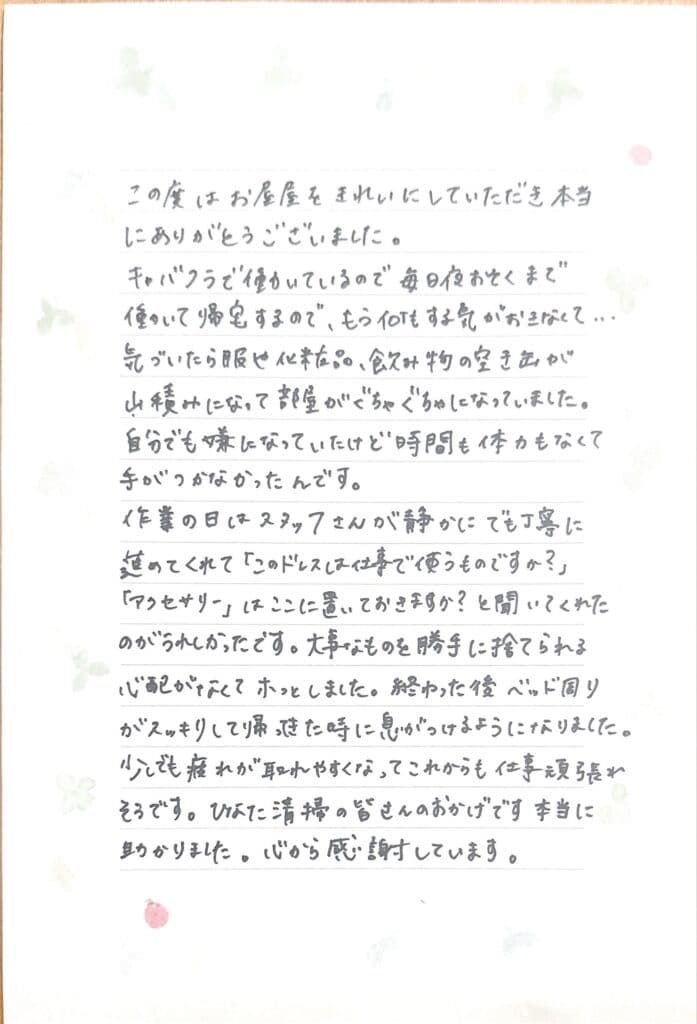 この度はお屋屋をきれいにしていただき本当
にありがとうございました。
キャバクラで働いているので毎日夜おそくまで
働いて帰宅するので、もう何もする気がおきなくて...
気づいたら服や化粧品、飲み物の空き缶が
山積みになって部屋がぐちゃぐちゃになっていました。
自分でも嫌になっていたけど時間も体力もなくて
手がつかなかったんです。
作業の日はスタッフさんが静かにでも丁寧に
進めてくれて「このドレスは仕事で使うものですか?」
「アクセサリー」はここに置いておきますか?と聞いてくれた
のがうれしかったです。大事なものを勝手に捨てられる
心配がなくてホッとしました。終わった後ベッド周り
がスッキリして帰ってきた時に息がつけるようになりました。
少しでも疲れが取れやすくなってこれからも仕事頑張れ
そうです。ひなた清掃の皆さんのおかげです本当に
助かりました。心から感謝しています。